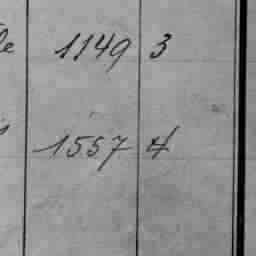 1149 3
1557 4